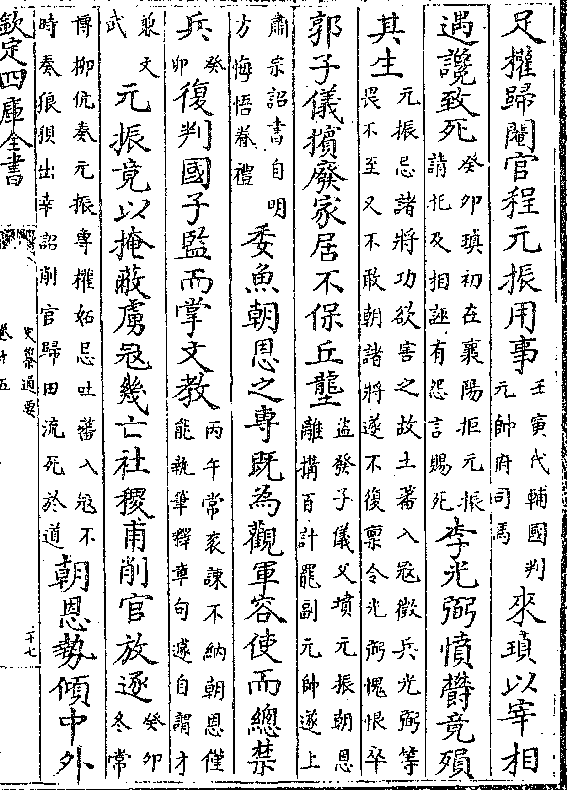 足權歸閹官程元振用事壬寅代輔國判元帥府司馬來瑱以宰相
遇讒致死癸卯瑱初在襄陽拒元振請托及相誣有怨言賜死李光弼憤欝竟殞
其生元振忌諸將功欲害之故土蕃入寇徵兵光弼等畏不至又不敢朝諸將遂不復禀令光弼愧恨卒
郭子儀擯廢家居不保丘壟盜發子儀父墳元振朝恩離搆百計罷副元帥遂上
肅宗詔書自明方悔悟眷禮委魚朝恩之專既為觀軍容使而總禁
兵癸卯復判國子監而掌文教丙午常衮諫不納朝恩僅能執筆釋章句遽自謂才
兼文武元振竟以掩蔽虜冦幾亡社稷甫削官放逐癸卯冬常
博柳伉奏元振專權妬忌吐蕃入冦不時奏狼狽出幸詔削官歸田流死於道朝恩勢傾中外
欽定四庫全書
史纂通要
卷廿五
二十七